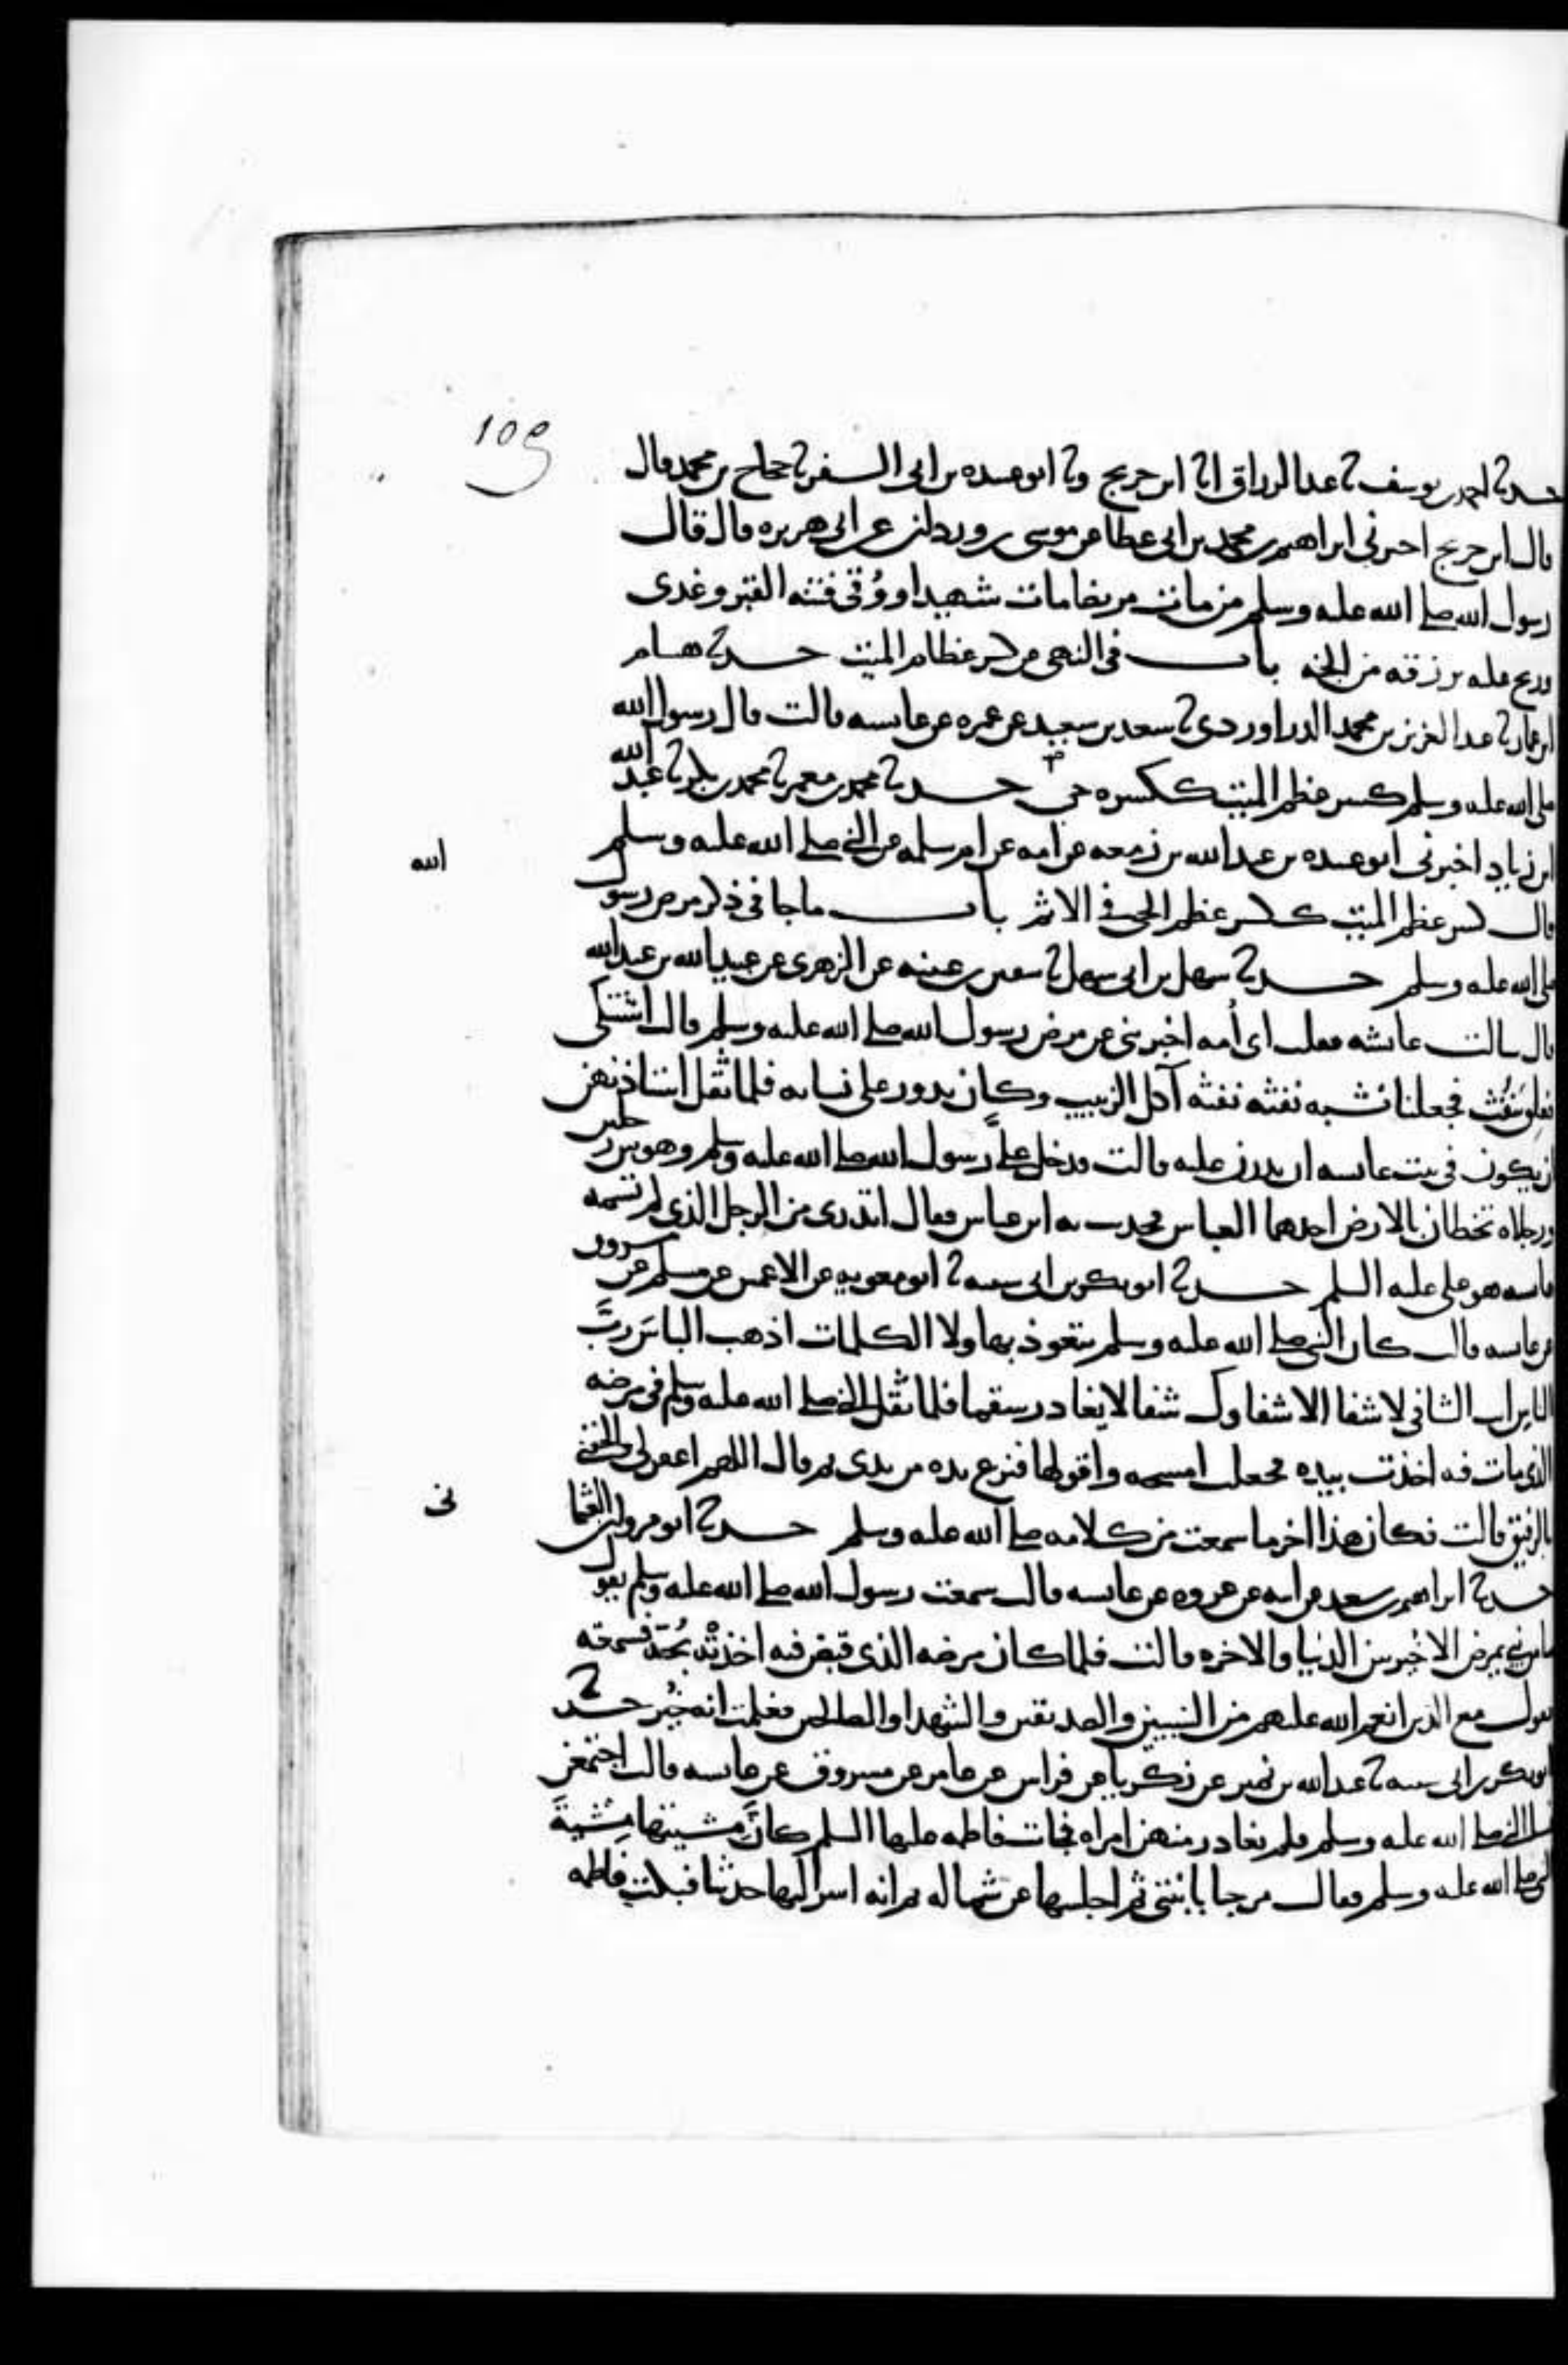 109
حدثا احمد بن يوسف ثا عبد الرزاق انا ابن جريج وثا ابو عبيده بن ابى السفر ثا حجاج بن محمد قال
قال ابن جريج اخبرنى ابراهيم بن محمد بن ابى عطا عن موسى بن وردان عن ابى هريره قال قال
رسول الله صلى الله عليه وسلم من مات مريضا مات شهيدا ووُقى فتنه القبر وغدى
وريح عليه برزقه من الجنه باب فى النهى عن كسر عظام الميت حدثا هشام
ابن عمار ثا عبد العزيز بن محمد الدراوردى ثا سعد بن سعيد عن عمره عن عايشه قالت قال رسول الله
صلى الله عليه وسلم كسر عظم الميت ككسره حى حدثا محمد بن معمر ثا محمد بن بكر ثا عبد الله
ابن زياد اخبرنى ابو عبيده بن عبد الله بن زمعه عن امه عن ام سلمه عن النبى صلى الله عليه وسلم
قال كسر عظم الميت ككسر عظم الحى فى الاثم باب ما جا فى ذكر مرض رسول
الله
صلى الله عليه وسلم حدثا سهل بن ابى سهل ثا سفين بن عيينه عن الزهرى عن عبيد الله بن عبد الله
قال سالت عائشه فقلت اى اُمه اخبرينى عن مرض رسول الله صلى الله عليه وسلم قالت اشتكى
فعلق ينفُث فجعلنا نشبه نفثه نفثه آكل الزبيب وكان يدور على نسايه فلما ثقل استاذنهن
ان يكون فى بيت عايشه ان يدرن عليه قالت فدخل علىَّ رسول الله صلى الله عليه وسلم وهو بين رجلين
ورجلاه تخطان بالارض احدهما العباس فحدثت به ابن عباس فقال اتدرى من الرجل الذى لم تسمه
عايشه هو على عليه السلم حدثا ابو بكر بن ابى شيبه ثا ابو معويه عن الاعمش عن مسلم عن مسروق
عن عايشه قالت كان النبى صلى الله عليه وسلم يتعوذ بهاولا الكلمات اذهب الباسَ ربَّ
الناس انت الشافى لا شفا الا شفاوك شفا لا يغادر سقما فلما ثقل النبى صلى الله عليه وسلم فى مرضه
الذى مات فيه اخذت بيده فجعلت امسحه واقولها فنزع يده من يدى ثم قال اللهم اغفر لى والحقنى
بالرفيق قالت فكان هذا اخر ما سمعت من كلامه صلى الله عليه وسلم حدثا ابو مروان العثما
نى
حدثا ابراهيم بن سعد عن ابيه عن عروه عن عايشه قالت سمعت رسول الله صلى الله عليه وسلم يقول
ما من نبى يمرض الا خُير بين الدنيا والاخره قالت فلما كان مرضه الذى قبض فيه اخذتْه بُحّه فسمعته
يقول مع الذين انعم الله عليهم من النبيين والصديقين والشهدا والصالحين فعلمت انه خُير حدثا
ابو بكر بن ابى شيبه ثا عبد الله بن نمير عن زكريا عن فراس عن عامر عن مسروق عن عايشه قالت اجتمعن
نسا النبى صلى الله عليه وسلم فلم يغادر منهن امراه فجات فاطمه عليها السلم كانَّ مشيتها مِشْيةَ
النبى صلى الله عليه وسلم فقال مرحبا بابنتى ثم اجلسها عن شماله ثم انه اسر اليها حديثا فبكت فاطمه